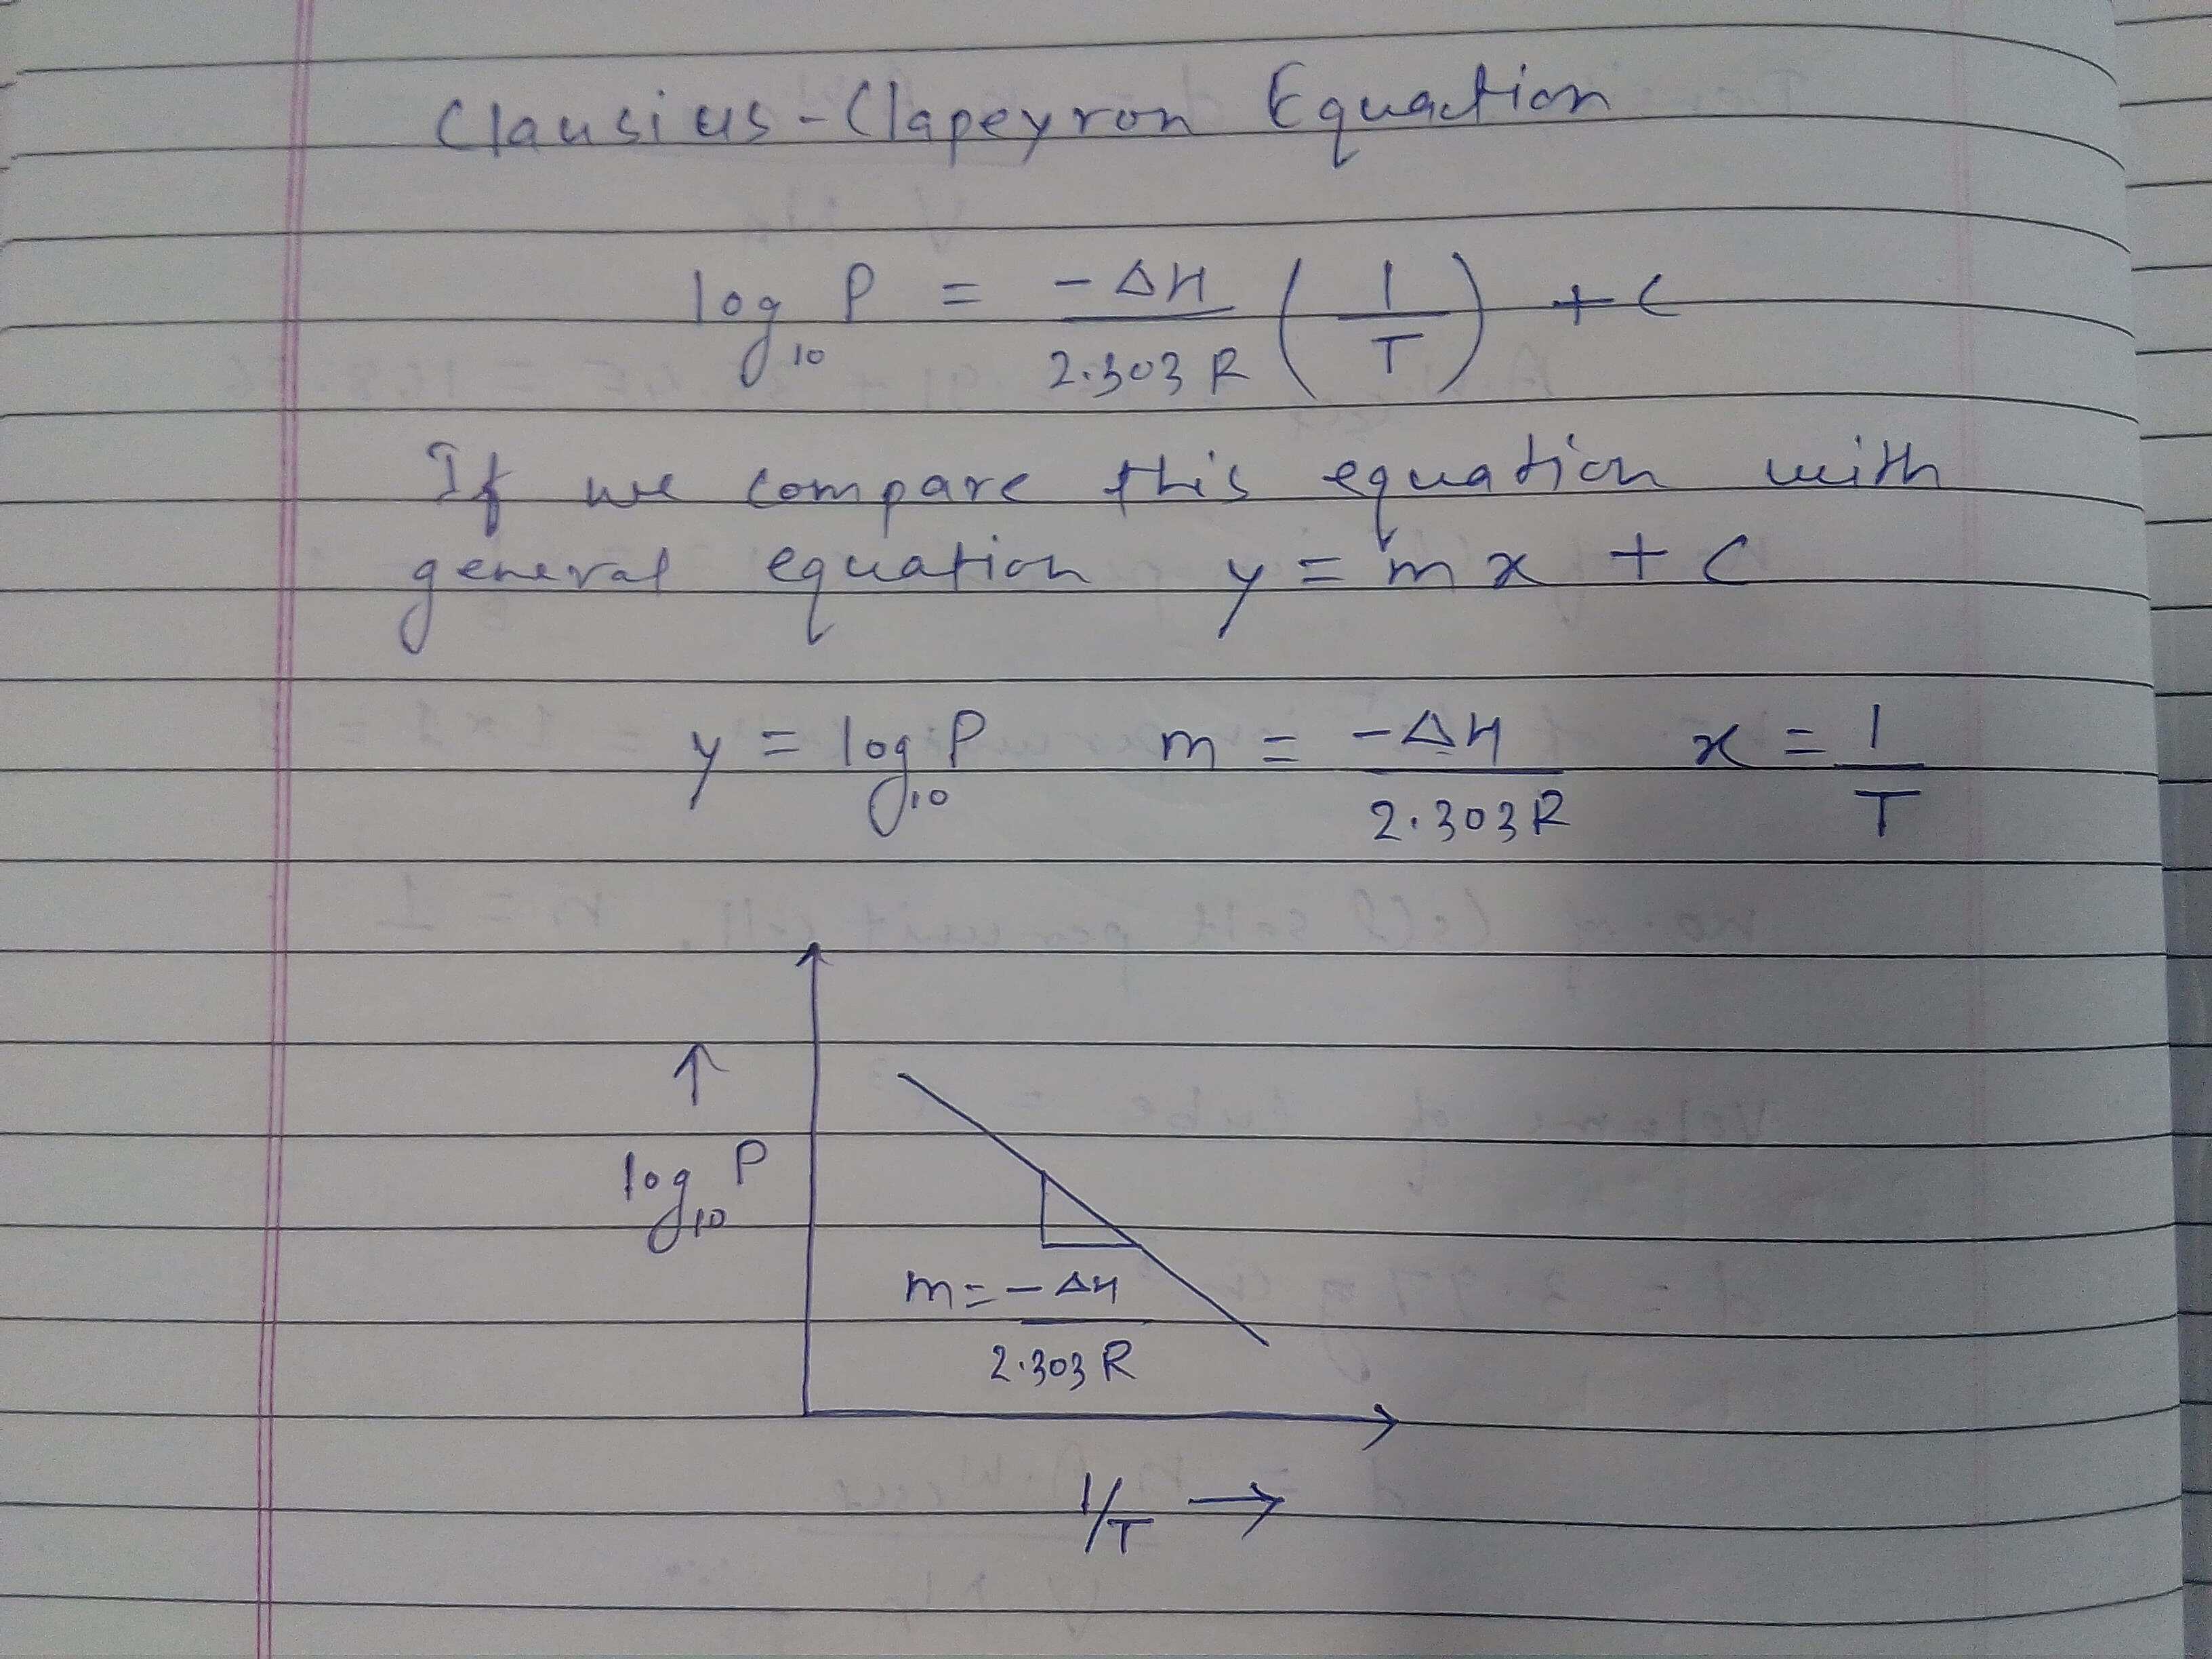 Clausius-Clapeyron Equation
log₁₀ P = -ΔH / 2.303 R (1/T) + C
If we compare this equation with
general equation y = mx + C
y = log₁₀ P   m = -ΔH / 2.303R   x = 1/T
↑
log₁₀ P
m = -ΔH / 2.303 R
1/T →